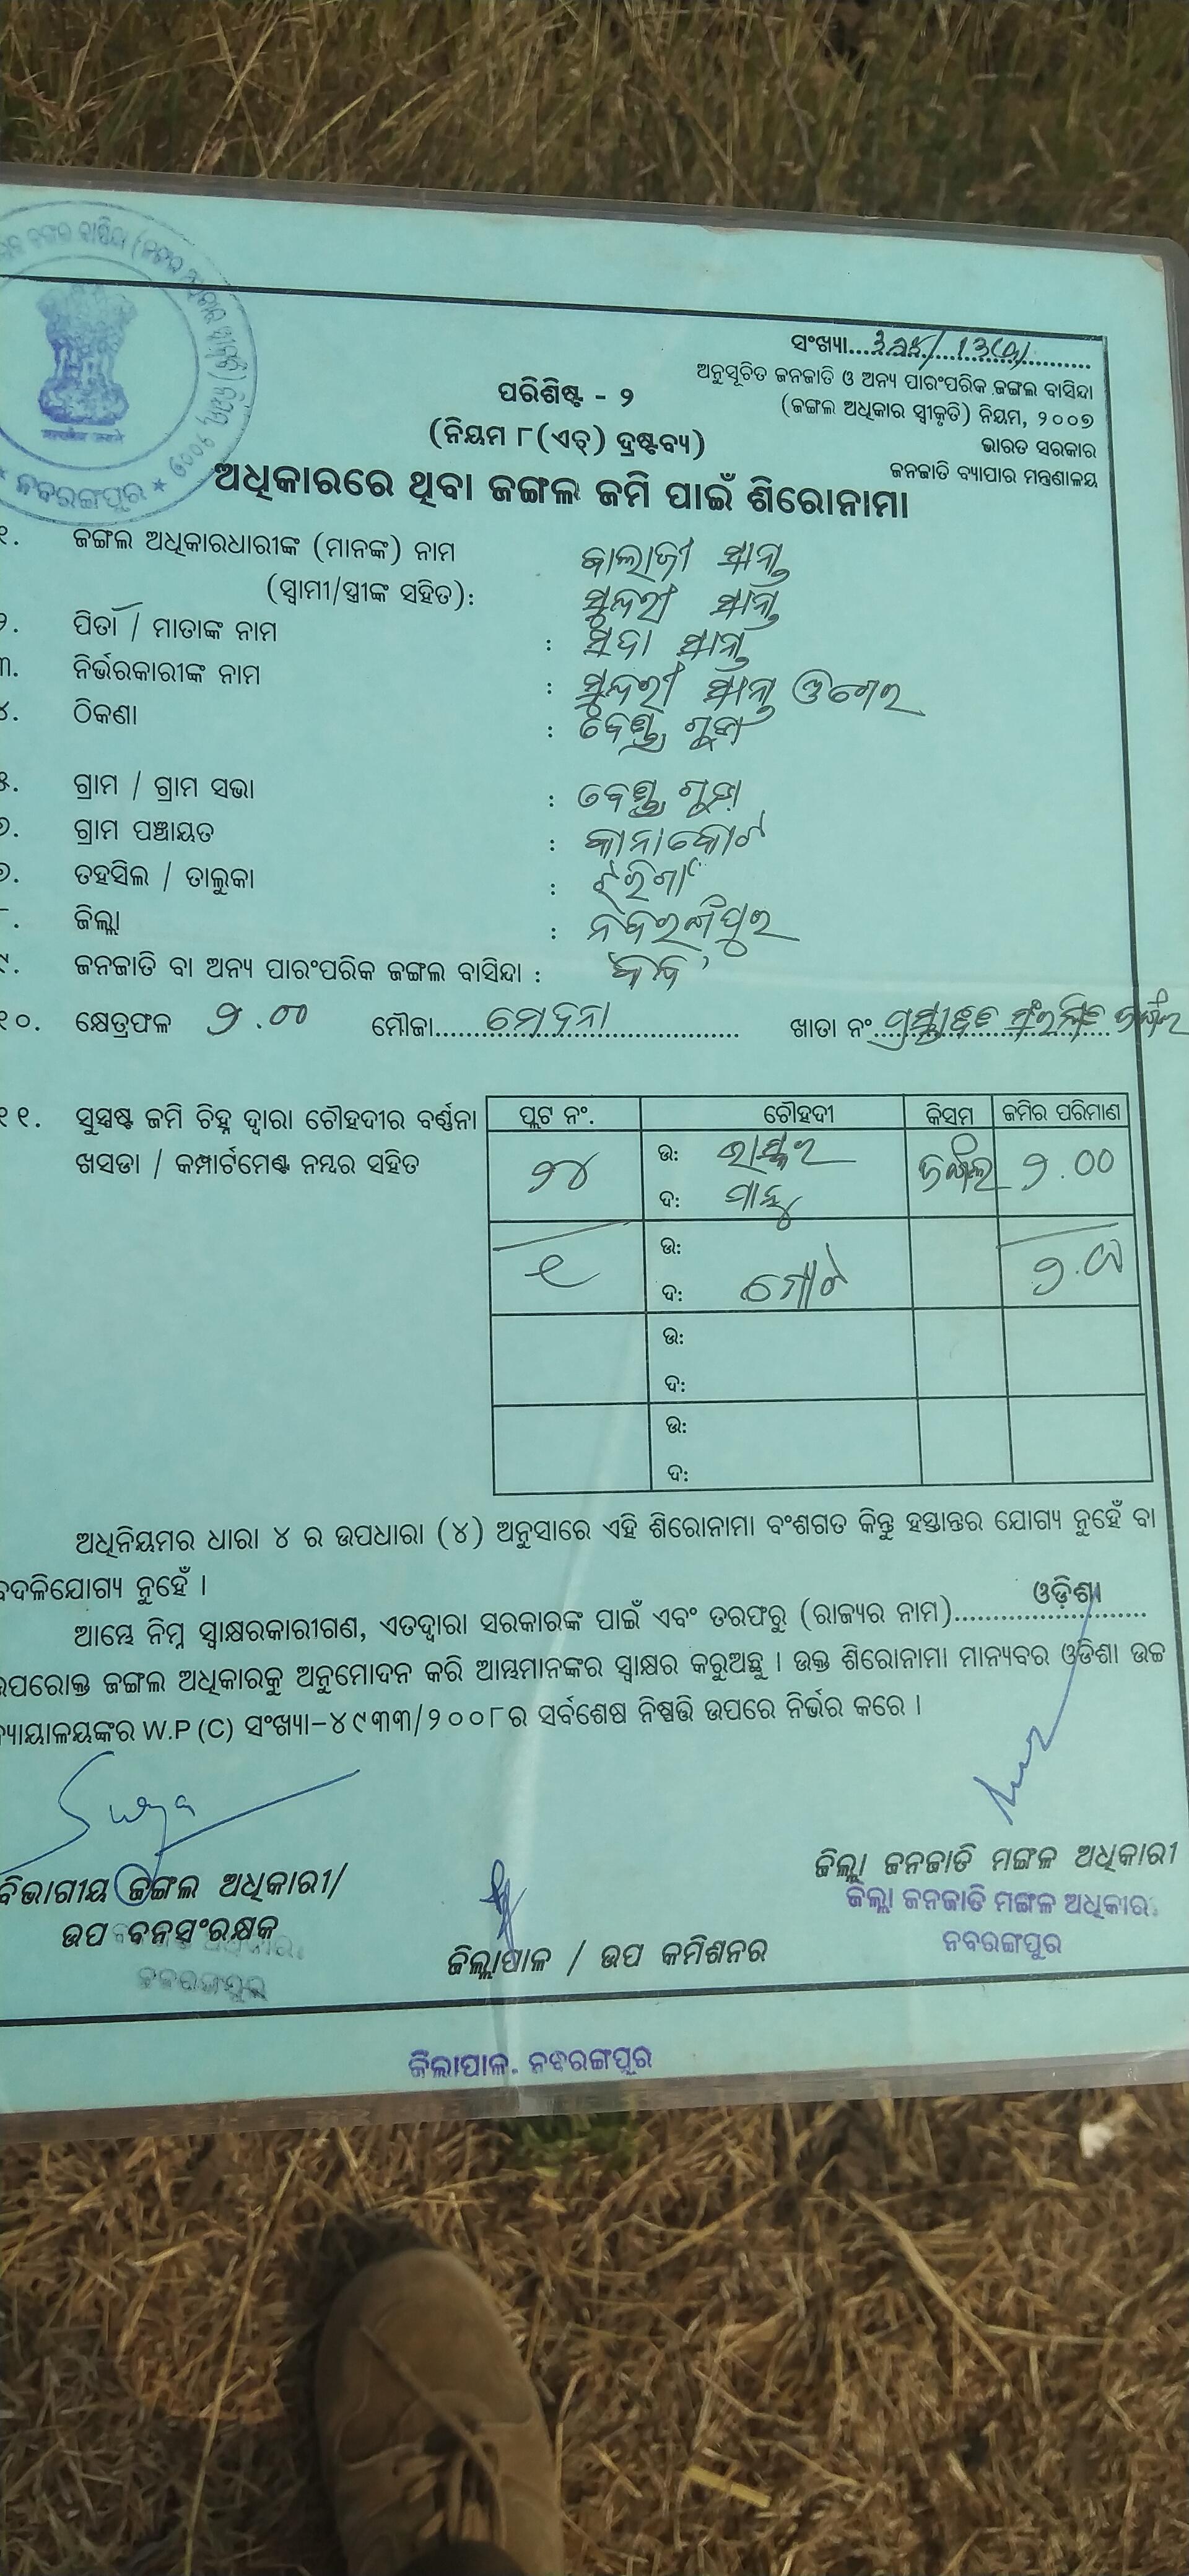 ସଂଖ୍ୟା
ଅନୁସୂଚିତ ଜନଜାତି ଓ ଅନ୍ୟ ପାରଂପରିକ ଜଙ୍ଗଲ ବାସିନ୍ଦା
(ଜଙ୍ଗଲ ଅଧିକାର ସ୍ୱୀକୃତି) ନିୟମ, ୨୦୦୭
ଭାରତ ସରକାର
ଜନଜାତି ବ୍ୟାପାର ମନ୍ତ୍ରଣାଳୟ
ପରିଶିଷ୍ଟ - ୨
(ନିୟମ ୮(ଏଚ୍) ଦ୍ରଷ୍ଟବ୍ୟ)
ଅଧିକାରରେ ଥିବା ଜଙ୍ଗଲ ଜମି ପାଇଁ ଶିରୋନାମା
୧. ଜଙ୍ଗଲ ଅଧିକାରଧାରୀଙ୍କ (ମାନଙ୍କ) ନାମ ବାଲାଜୀ ସାନ୍ତ
(ସ୍ୱାମୀ/ସ୍ତ୍ରୀଙ୍କ ସହିତ): ସୁନ୍ଦରୀ ସାନ୍ତ
୨. ପିତା / ମାତାଙ୍କ ନାମ : ସଦା ସାନ୍ତ
୩. ନିର୍ଭରକାରୀଙ୍କ ନାମ : ସୁନ୍ଦରୀ ସାନ୍ତ
୪. ଠିକଣା :
୫. ଗ୍ରାମ / ଗ୍ରାମ ସଭା :
୬. ଗ୍ରାମ ପଞ୍ଚାୟତ :
୭. ତହସିଲ / ତାଲୁକା : ଝରିଗାଁ
୮. ଜିଲ୍ଲା : ନବରଙ୍ଗପୁର
୯. ଜନଜାତି ବା ଅନ୍ୟ ପାରଂପରିକ ଜଙ୍ଗଲ ବାସିନ୍ଦା :
୧୦. କ୍ଷେତ୍ରଫଳ ୨.୦୦ ମୌଜା ମେଦନା ଖାତା ନଂ ଜଙ୍ଗଲ
୧୧. ସୁସ୍ପଷ୍ଟ ଜମି ଚିହ୍ନ ଦ୍ୱାରା ଚୌହଦୀର ବର୍ଣ୍ଣନା
ଖସଡା / କମ୍ପାର୍ଟମେଣ୍ଟ ନମ୍ଭର ସହିତ
ପ୍ଲଟ ନଂ. ଚୌହଦୀ କିସମ ଜମିର ପରିମାଣ
୨୪ ଉ: ଭାସ୍କର ଜଙ୍ଗଲ ୨.୦୦
ଦ:
ଉ:
ଦ: ଗୋଟେ
ଉ:
ଦ:
ଉ:
ଦ:
ଅଧିନିୟମର ଧାରା ୪ ର ଉପଧାରା (୪) ଅନୁସାରେ ଏହି ଶିରୋନାମା ବଂଶଗତ କିନ୍ତୁ ହସ୍ତାନ୍ତର ଯୋଗ୍ୟ ନୁହେଁ ବା
ବଦଳିଯୋଗ୍ୟ ନୁହେଁ ।
ଆମ୍ଭେ ନିମ୍ନ ସ୍ୱାକ୍ଷରକାରୀଗଣ, ଏତଦ୍ୱାରା ସରକାରଙ୍କ ପାଇଁ ଏବଂ ତରଫରୁ (ରାଜ୍ୟର ନାମ)......ଓଡ଼ିଶା......
ଉପରୋକ୍ତ ଜଙ୍ଗଲ ଅଧିକାରକୁ ଅନୁମୋଦନ କରି ଆମ୍ଭମାନଙ୍କର ସ୍ୱାକ୍ଷର କରୁଅଛୁ । ଉକ୍ତ ଶିରୋନାମା ମାନ୍ୟବର ଓଡିଶା ଉଚ୍ଚ
ନ୍ୟାୟାଳୟଙ୍କର W.P (C) ସଂଖ୍ୟା-୪୯୩୩/୨୦୦୮ର ସର୍ବଶେଷ ନିଷ୍ପତ୍ତି ଉପରେ ନିର୍ଭର କରେ ।
ବିଭାଗୀୟ ଜଙ୍ଗଲ ଅଧିକାରୀ/
ଉପ ବନସଂରକ୍ଷକ
ନବରଙ୍ଗପୁର
ଜିଲ୍ଲାପାଳ / ଉପ କମିଶନର
ଜିଲ୍ଲା ଜନଜାତି ମଙ୍ଗଳ ଅଧିକାରୀ
ଜିଲ୍ଲା ଜନଜାତି ମଙ୍ଗଳ ଅଧିକାରୀ
ନବରଙ୍ଗପୁର
ଜିଲାପାଳ. ନବରଙ୍ଗପୁର